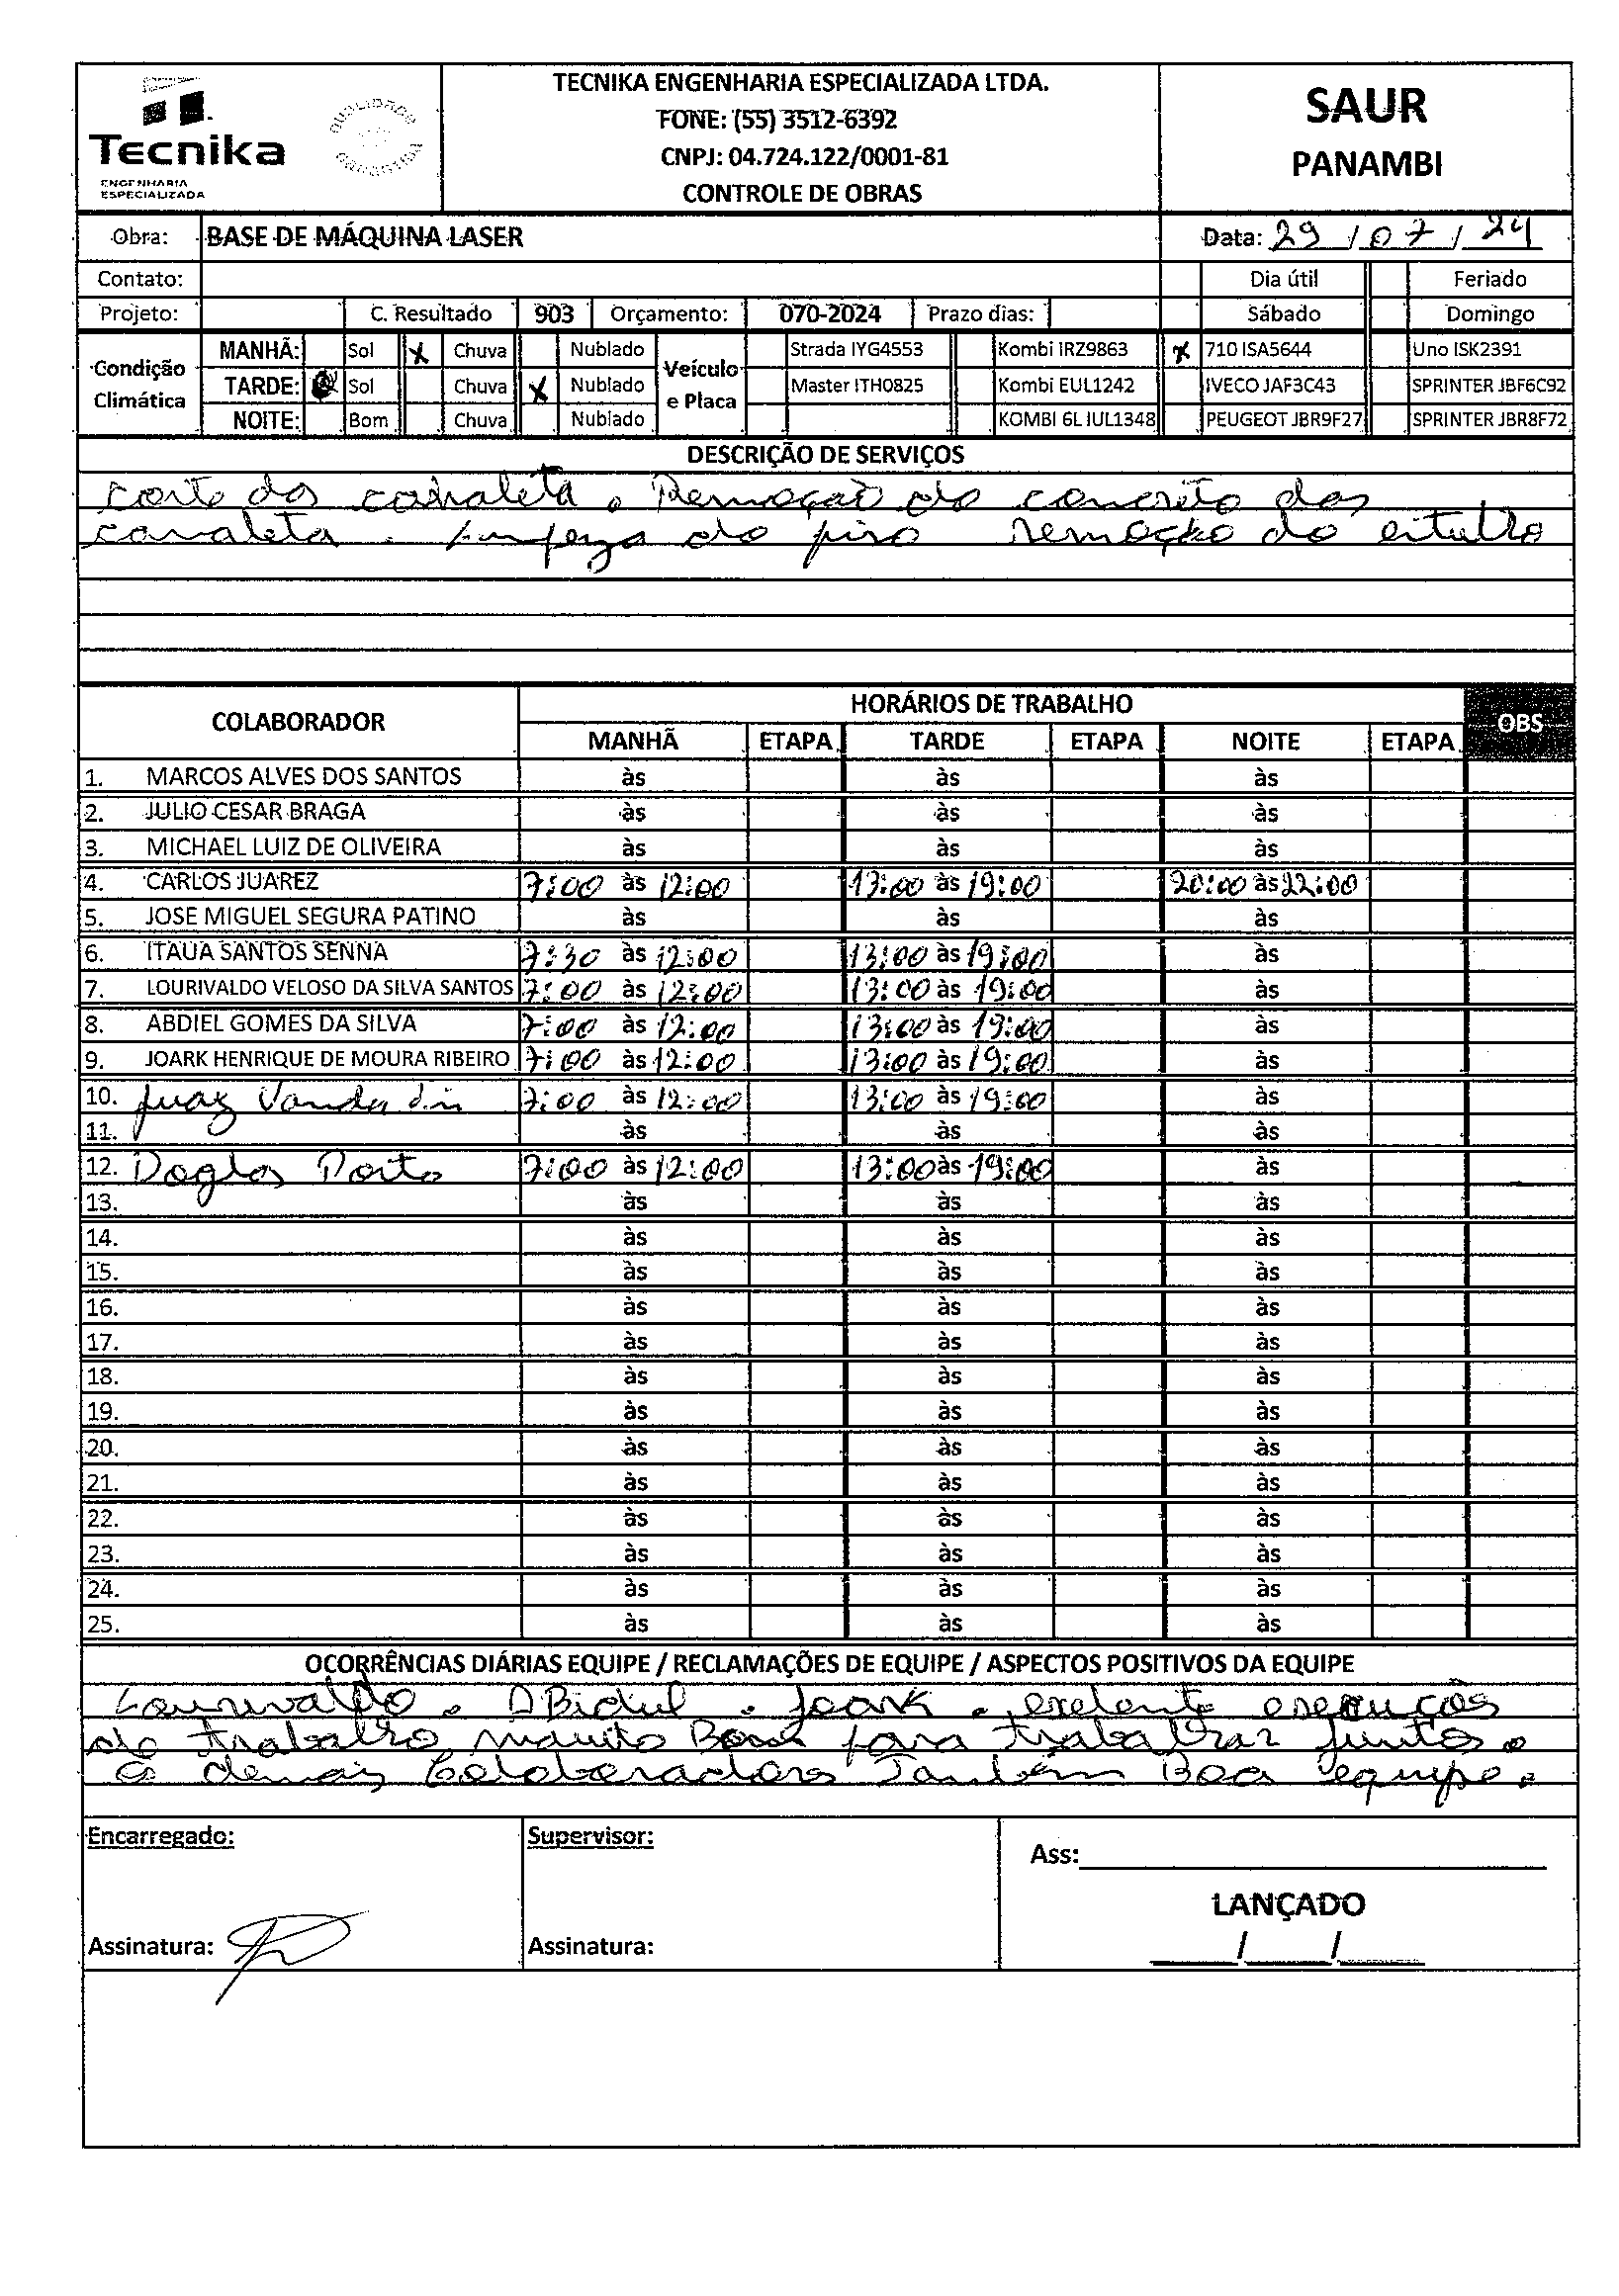 TECNIKA ENGENHARIA ESPECIALIZADA LTDA.
FONE: (55) 3512-6392
CNPJ: 04.724.122/0001-81
CONTROLE DE OBRAS
Tecnika
ENGENHARIA
ESPECIALIZADA
QUALIDADE
SAUR
PANAMBI
Obra: BASE DE MÁQUINA LASER Data: 29/07/24
Contato: Dia útil Feriado
Projeto: C. Resultado 903 Orçamento: 070-2024 Prazo dias: Sábado Domingo
Condição Climática
MANHÃ: Sol X Chuva Nublado
TARDE: Sol Chuva X Nublado
NOITE: Bom Chuva Nublado
Veículo e Placa
Strada IYG4553 Kombi IRZ9863 X 710 ISA5644 Uno ISK2391
Master ITH0825 Kombi EUL1242 IVECO JAF3C43 SPRINTER JBF6C92
KOMBI 6L IUL1348 PEUGEOT JBR9F27 SPRINTER JBR8F72
DESCRIÇÃO DE SERVIÇOS
corte das . Remoção do concreto das
canaleta . limpeza do piso remoção do
COLABORADOR HORÁRIOS DE TRABALHO OBS
MANHÃ ETAPA TARDE ETAPA NOITE ETAPA
1. MARCOS ALVES DOS SANTOS às às às
2. JULIO CESAR BRAGA às às às
3. MICHAEL LUIZ DE OLIVEIRA às às às
4. CARLOS JUAREZ 7:00 às 12:00 13:00 às 19:00 20:00 às 22:00
5. JOSE MIGUEL SEGURA PATINO às às às
6. ITAUA SANTOS SENNA 7:30 às 12:00 13:00 às 19:00 às
7. LOURIVALDO VELOSO DA SILVA SANTOS 7:00 às 12:00 13:00 às 19:00 às
8. ABDIEL GOMES DA SILVA 7:00 às 12:00 13:00 às 19:00 às
9. JOARK HENRIQUE DE MOURA RIBEIRO 7:00 às 12:00 13:00 às 19:00 às
10. 7:00 às 12:00 13:00 às 19:00 às
11. às às às
12. Doglas Porto 7:00 às 12:00 13:00 às 19:00 às
13. às às às
14. às às às
15. às às às
16. às às às
17. às às às
18. às às às
19. às às às
20. às às às
21. às às às
22. às às às
23. às às às
24. às às às
25. às às às
OCORRÊNCIAS DIÁRIAS EQUIPE / RECLAMAÇÕES DE EQUIPE / ASPECTOS POSITIVOS DA EQUIPE
Lourivaldo . ABidiel . joark . exelente
do trabalho muito para trabalhar juntos .
demais Colaboradores Também Boa equipe .
Encarregado: Supervisor: Ass:
LANÇADO
Assinatura: Assinatura: / /